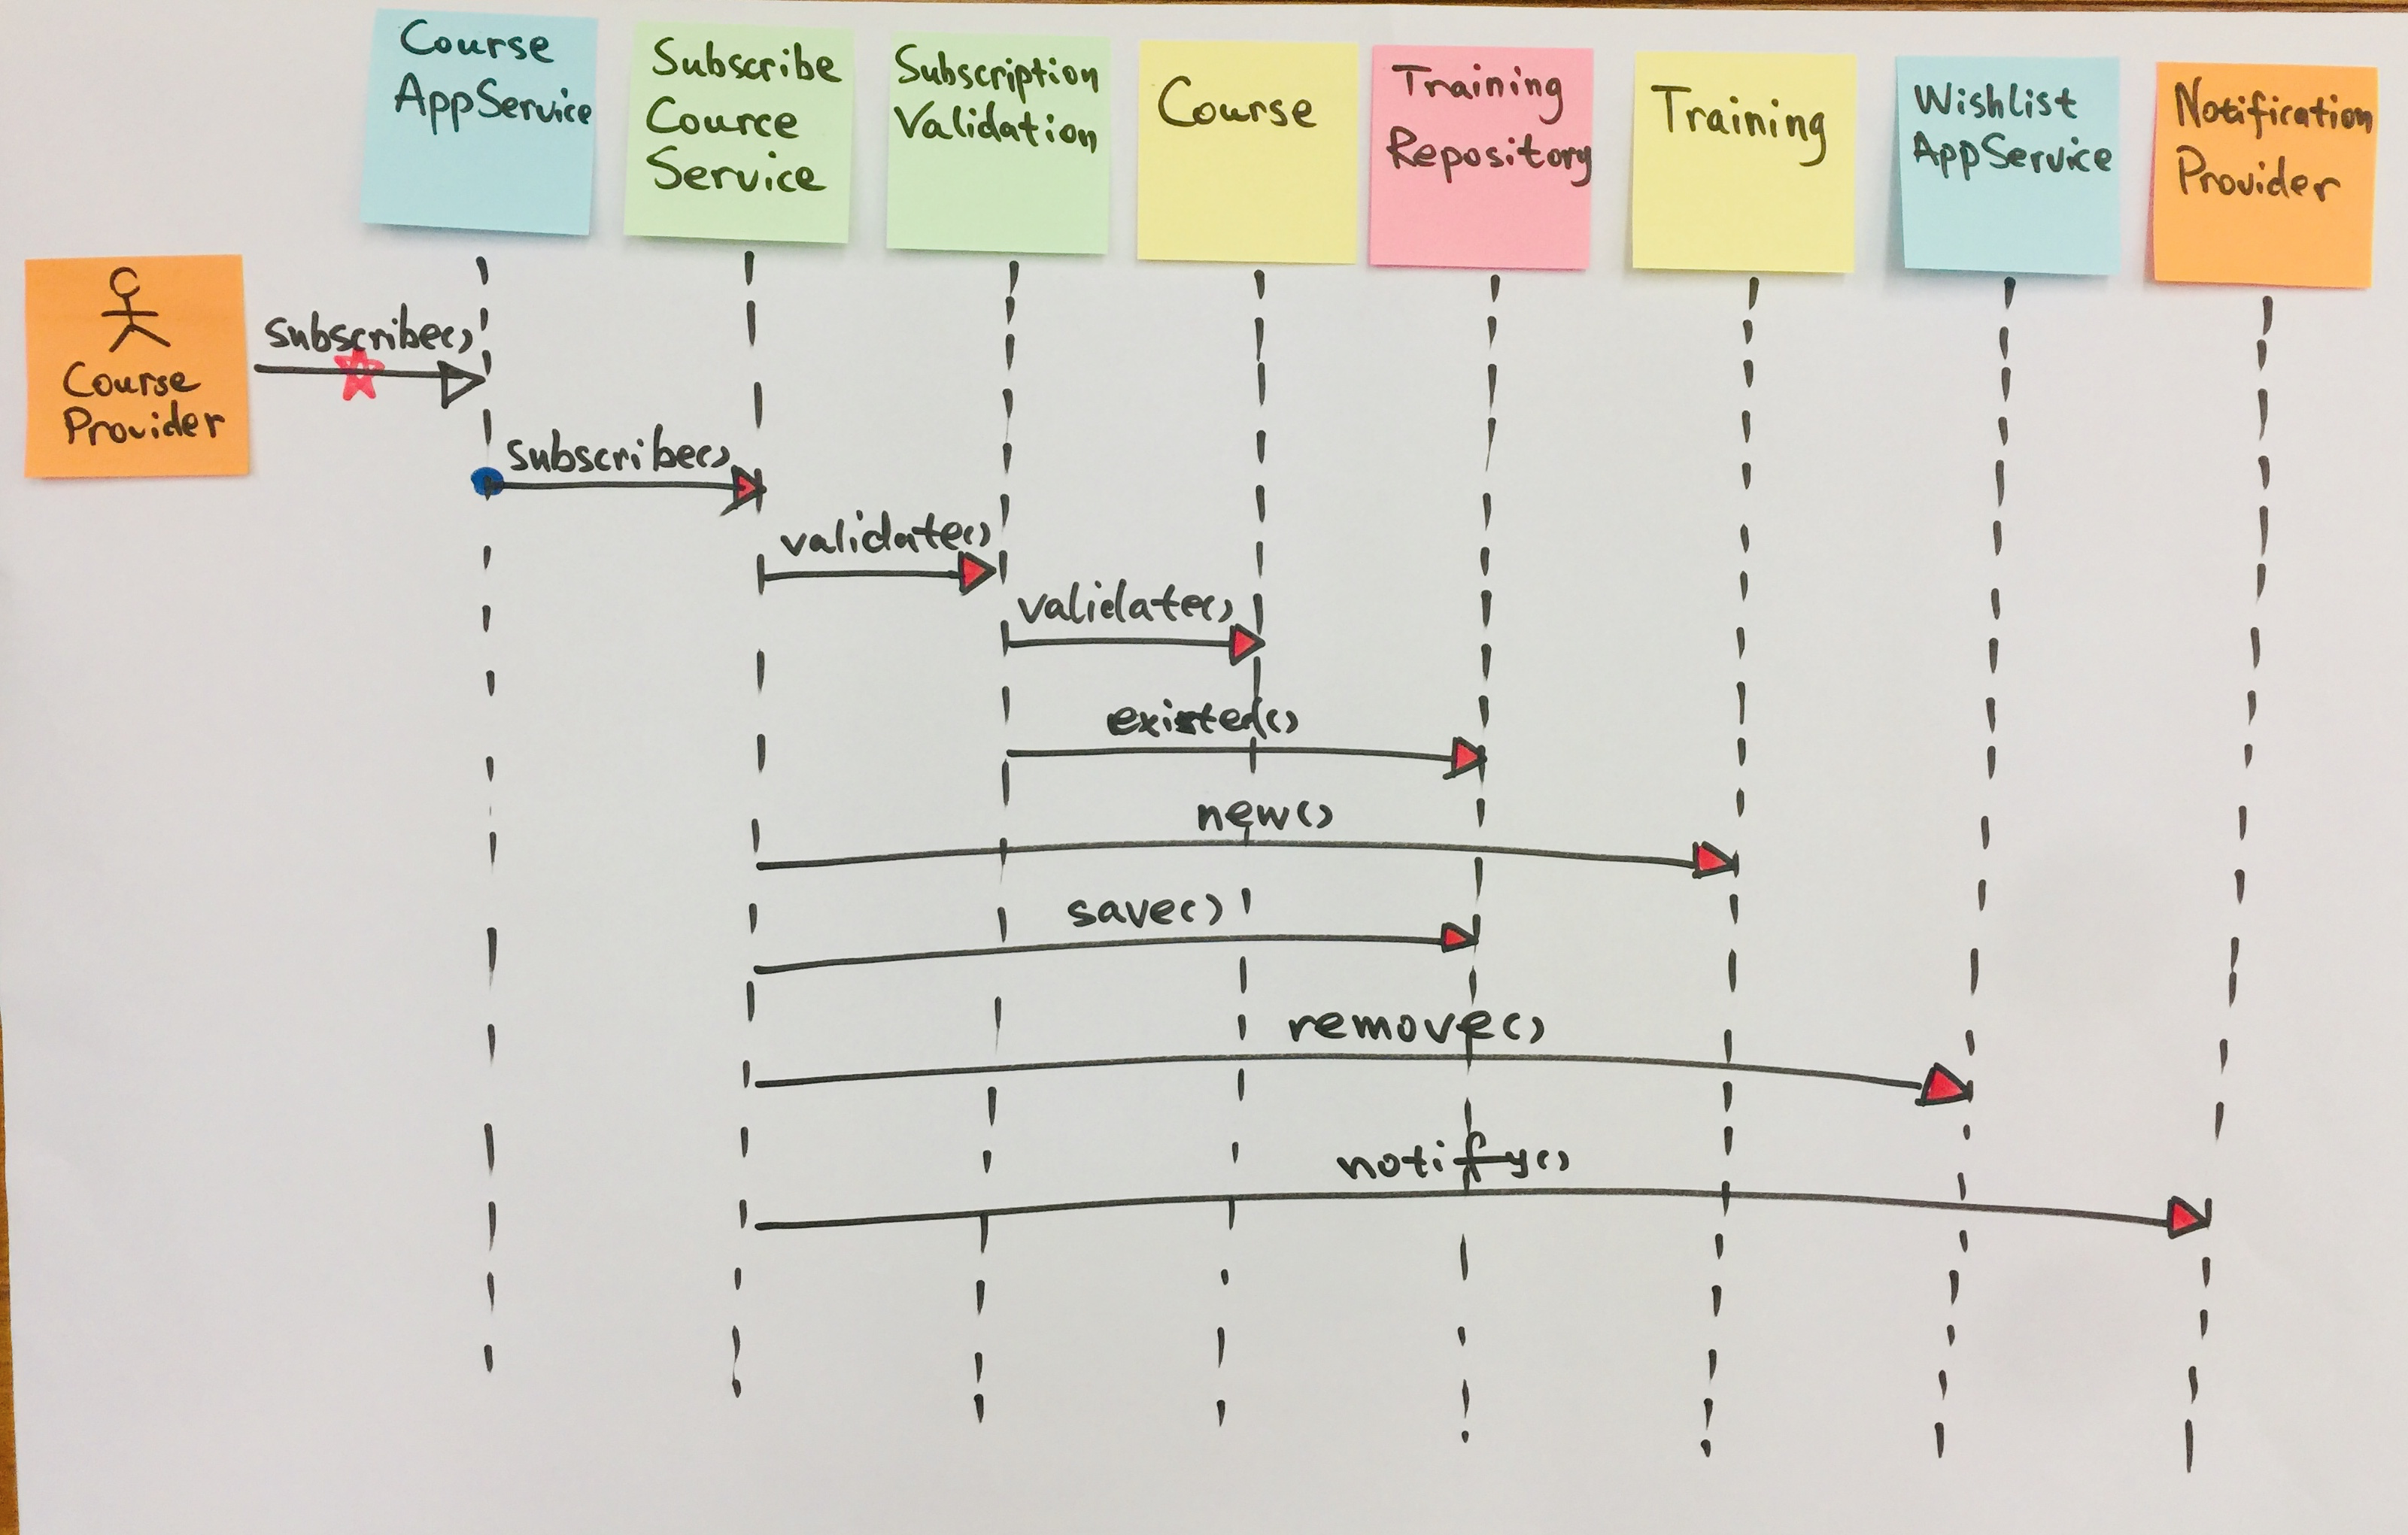 Course
AppService
Subscribe
Cource
Service
Subscription
Validation
Course
Training
Repository
Training
Wishlist
AppService
Notification
Provider
Course
Provider
subscribe()
subscribe()
validate()
validate()
existed()
new()
save()
remove()
notify()